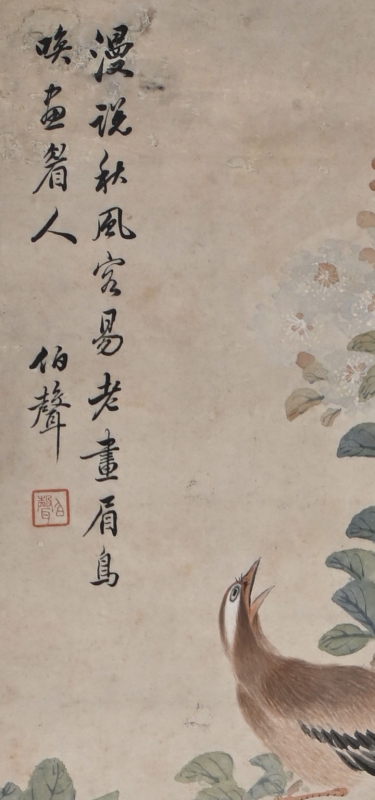 漫説秋風容易老畫眉鳥
喚畫眉人
伯聲
伯聲